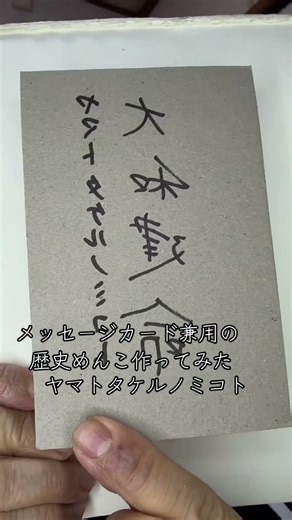 大和
ヤマトタケルノミコト
メッセージカード兼用の
歴史めんこ作ってみた
ヤマトタケルノミコト